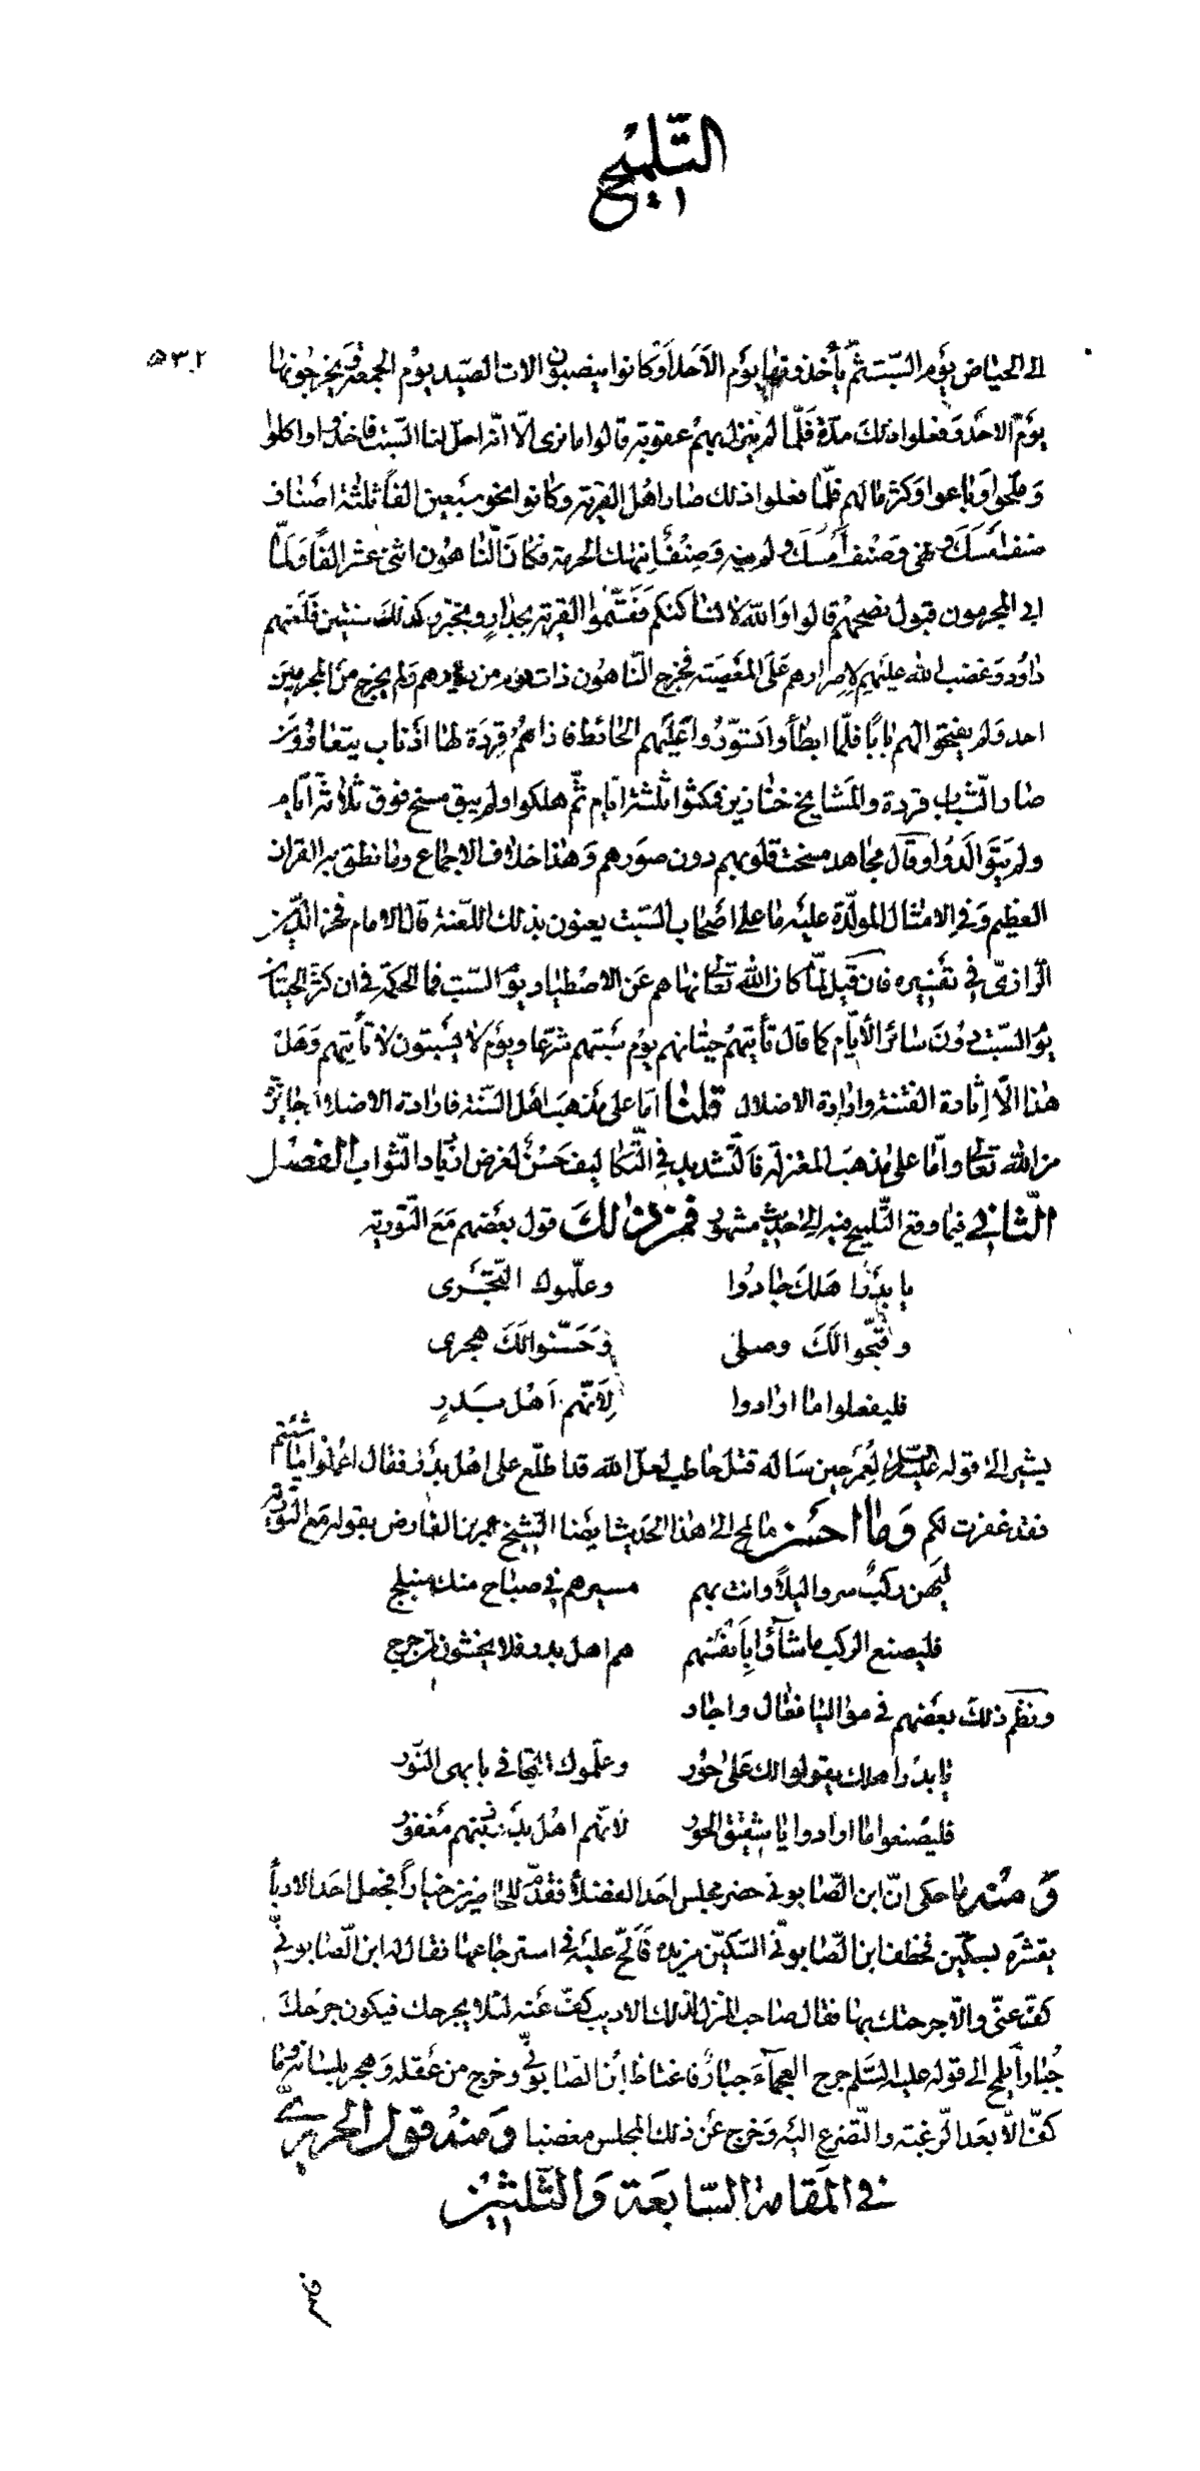 التّلميح
٥٣٢
الى الحياض يوم السّبت ثمّ يأخذونها يوم الاحد او كانوا ينصبون الات الصّيد يوم الجمعة ويخرجونها
يوم الاحد وفعلوا ذلك مدّة فلمّا لم ينزل بهم عقوبة قالوا ما نرى الّا انّه احلّ لنا السّبت فاخذوا واكلوا
وملّحوا وباعوا وكثر مالهم فلمّا فعلوا ذلك صار اهل القرية وكانوا نحو سبعين الفاً ثلثة اصناف
صنف امسك ونهى وصنف امسك ولم ينه وصنف انهك الحرمة فكان النّاهون اثنى عشر الفاً ولمّا
ابى المجرمون قبول نصحهم قالوا والله لا نساكنكم فقسّموا القرية بجدار وغبر كذلك سنتين فلعنهم
داود وغضب الله عليهم لاصرارهم على المعصية فخرج النّاهون ذات يوم من دورهم ولم يخرج من المجرمين
احد ولم يفتحوا لهم بابًا فلمّا ابطأوا تسوّروا عليهم الحائط فاذا هم قردة لها اذناب يتعاوون
صار الشّباب قردة والمشايخ خنازير فمكثوا ثلثة ايّام ثمّ هلكوا ولم يبق مسخ فوق ثلاثة ايّام
ولم يتوالدوا وقال مجاهد مسخت قلوبهم دون صورهم وهذا خلاف الاجماع وما نطق به القران
العظيم وفي الامثال المولّدة عليه ما على اصحاب السّبت يعنون بذلك اللّعنة قال الامام فخر الدّين
الرّازيّ في تفسيره فان قيل لمّا كان الله تعالى نهاهم عن الاصطياد يوم السّبت فما الحكمة في ان كثّر الحيتان
يوم السّبت دون سائر الأيّام كما قال تأتيهم حيتانهم يوم سبتهم شرّعا ويوم لا يسبتون لا تأتيهم وهل
هذا الّا اثارة الفتنة وارادة الاضلال قلنا امّا على مذهب اهل السّنّة فارادة الاضلال جائزة
من الله تعالى وامّا على مذهب المعتزلة فالتّشديد في التّكاليف حسن لغرض ازدياد الثّواب الفصل
الثّاني فيما وقع التّلميح فيه الى حديث مشهور فمن ذلك قول بعضهم مع التّورية
يا بدر اهلك جاروا وعلّموك التّجرى
وقبّحوا لك وصلى وحسّنوا لك هجرى
فليفعلوا ما ارادوا لانّهم اهل بدر
يشير الى قوله عليه السّلام لعمر حين ساله قتل حاطب لعلّ الله قد اطّلع على اهل بدر فقال اعملوا ما شئتم
فقد غفرت لكم وما احسن ما لمح الى هذا الحديث ايضا الشّيخ عمر بن الفارض بقوله مع التّورية
ليهن ركب سروا ليلاً وانت بهم مسيرهم في صباح منك منبلج
فليصنع الركب ما شاؤا بأنفسهم هم اهل بدر فلا يخشون من حرج
ونظم ذلك بعضهم في مواليا فقال واجاد
يا بدر اهلك يقولوا لك على جور وعلّموك التّجافي يا بهى النّور
فليصنعوا ما ارادوا يا شقيق الحور لانّهم اهل بدر ذنبهم مغفور
ومنه ما حكى انّ ابن الصّابوني حضر مجلس احد الفضلا فقدّم للحاضرين خياراً فجعل احد الادبا
يقشره بسكّين فخطف ابن الصّابونّي السّكّين من يده فالحّ عليه في استرجاعها فقال له ابن الصّابونيّ
كفّ عنّي والّا جرحتك بها فقال صاحب المنزل لذلك الاديب كفّ عنه لئلا يجرحك فيكون جرحك
جبارا يلمح الى قوله عليه السّلم جرح العجماء جبار فاغتاظ ابن الصّابونّي وخرج من عقله وهجر بلسانه وما
كفّ الّا بعد الرّغبة والتّضرع اليه وخرج عن ذلك المجلس مغضبا ومنه قول الحريريّ
في المقامة السّابعة والثّلثين